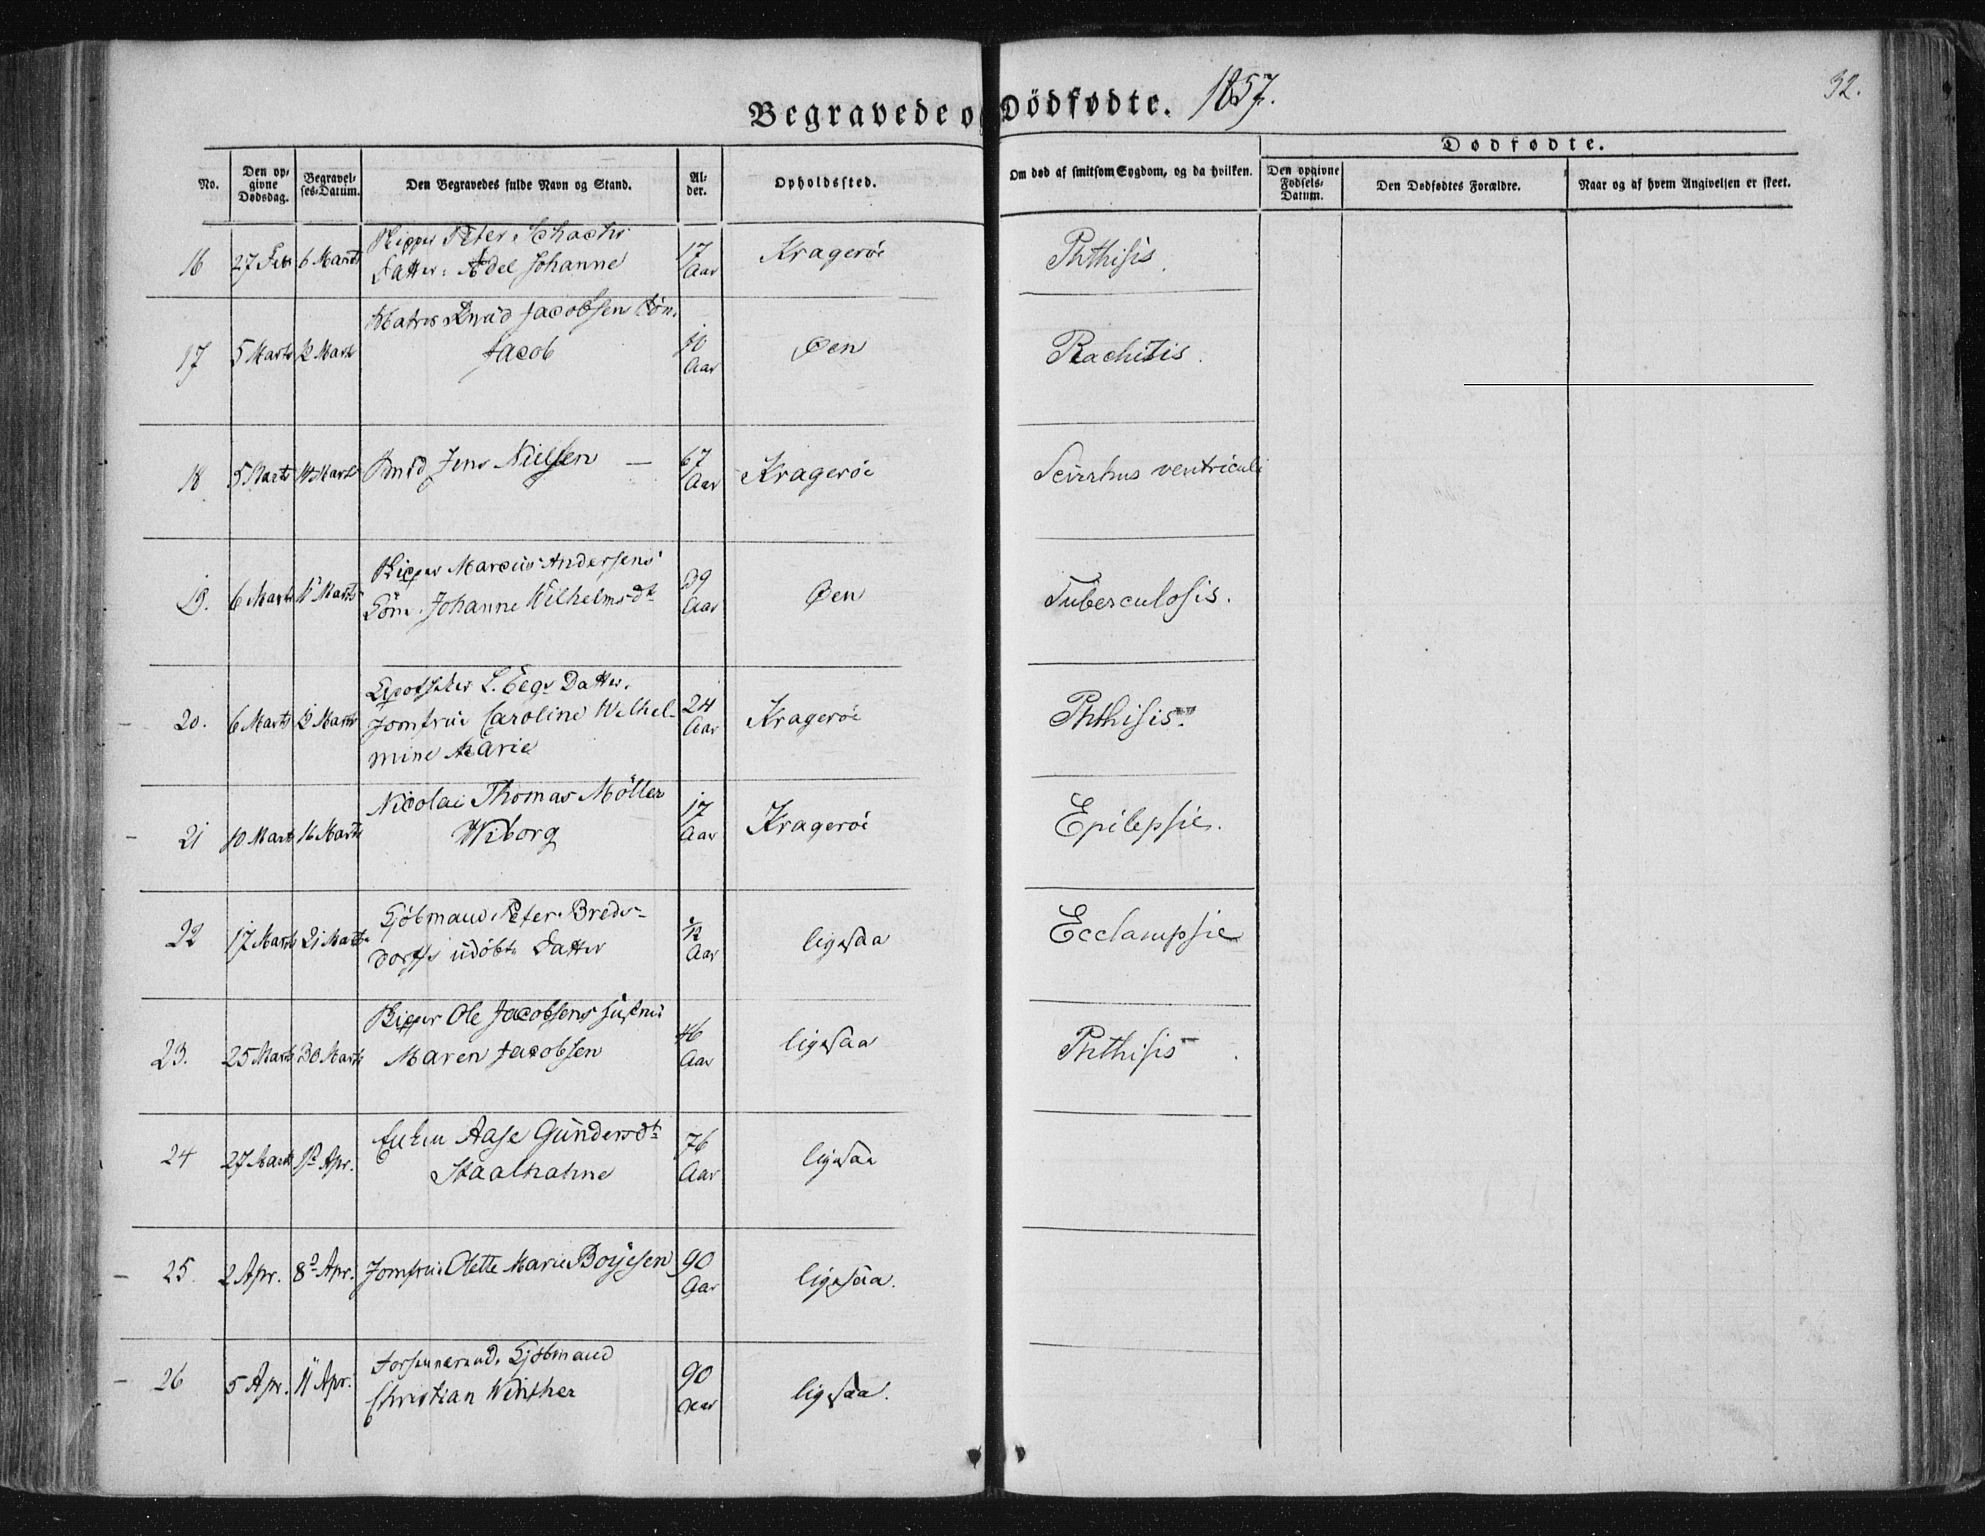 Begravede o Dödfødte. 1857.
32.
Dødfødte.
No.
Den op-
givne
Dødsdag.
Begravel-
ses-Datum.
Den Begravedes fulde Navn og Stand.
Al-
der.
Opholdssted.
Om død af smitsom Sygdom, og da hvilken.
Den opgivne
Fødsels-
Datum.
Den Dødfødtes Forældre.
Naar og af hvem Angivelsen er skeet.
16 27 Feb 6 Marts Peter Schachts
Datter: Adel Johanne 17 Aar Kragerøe Phthisis.
17 5 Marts 12 Marts Matros Knud Jacobsens Søn.
Jacob 10 Aar Øen Rachitis.
18 5 Marts 14 Marts Jens Nielsen — 67 Aar Kragerøe Scirrhus ventriculi
19. 6 Marts Marts Marcus Andersens
Johanne Wilhelmsdt 39 Aar Øen Tuberculosis.
20. 6 Marts Marts L. Eegs Datter.
Jomfrue Caroline Wilhel-
mine Marie 24 Aar Kragerøe Phthisis.
21 10 Marts 16 Marts Nicolai Thomas Möller
Wiborg 17 Aar Kragerøe Epilepsie.
22 17 Marts 21 Marts Sjömand Peter Breds-
dorffs udöbte Datter Aar ligesaa Ecclampsie
23. 25 Marts 30 Marts Ole Jacobsens Hustrue
Maren Jacobsen 46 Aar ligesaa Phthisis
24 27 Marts Apr. Enken Aase Gundersdt
Staalhahne 76 Aar ligesaa
25. 2 Apr. 8de Apr. Jomfrue Olette Marie Boyesen 90 Aar ligesaa.
26 5 Apr. 11 Apr. Sjömand
Christian Winther 90 Aar ligesaa.